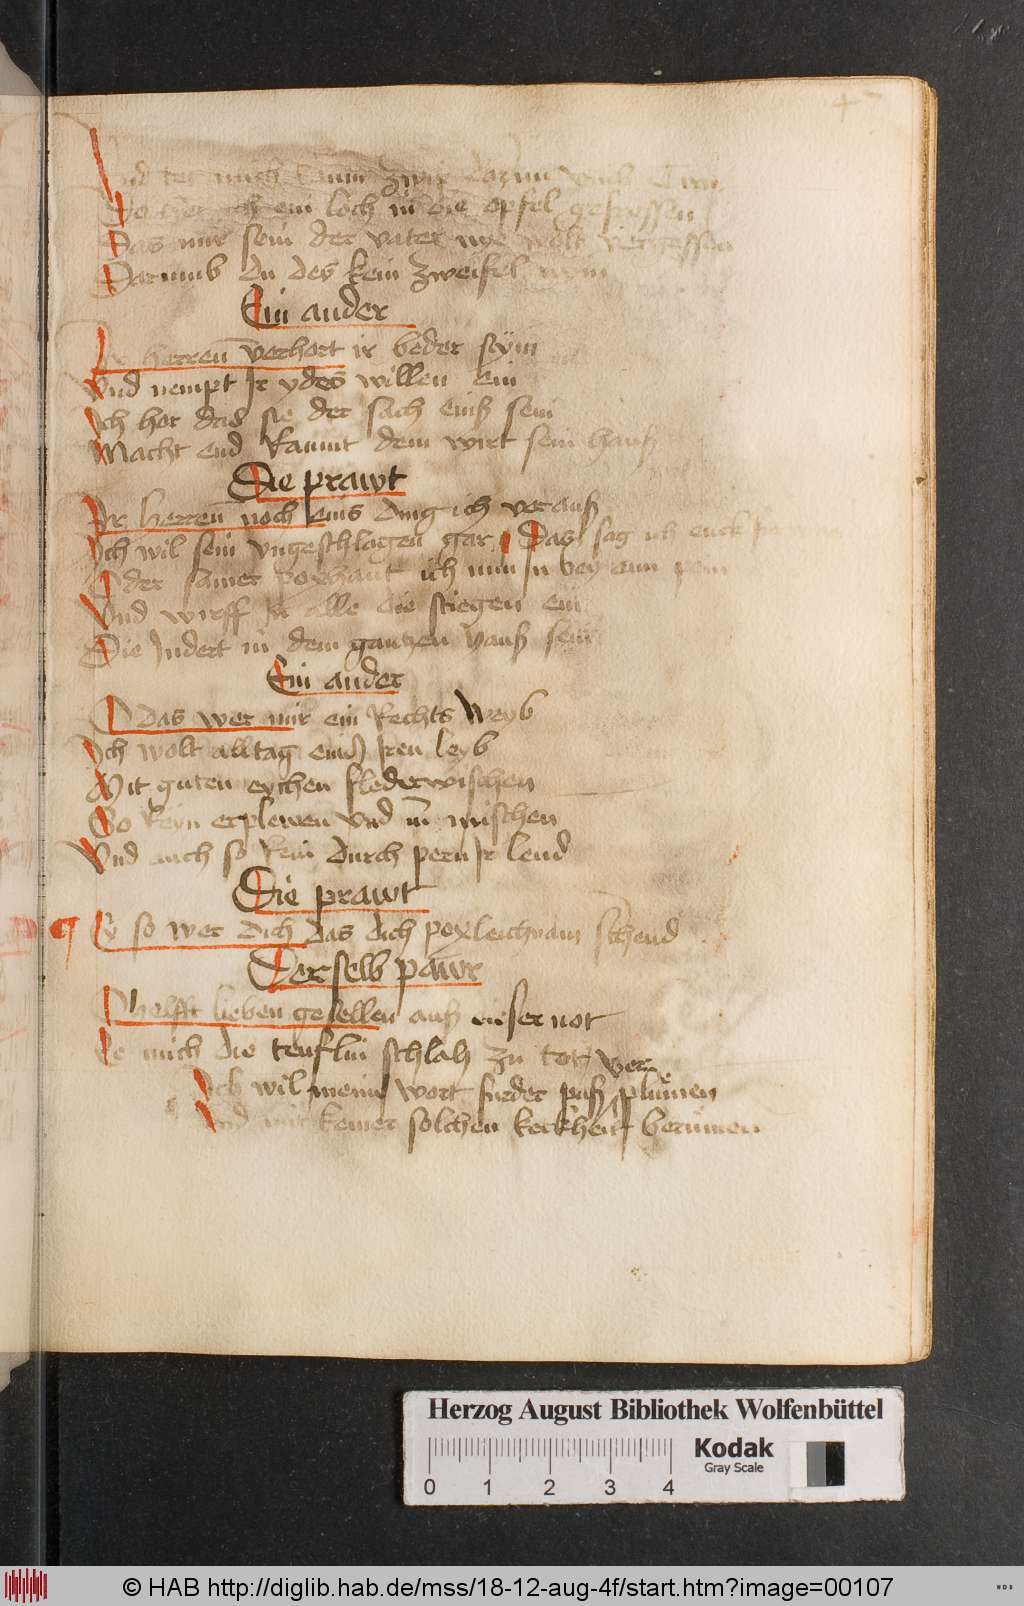 Und
ein loch in die opfel gefressen
Das mir sein der vater nye wolt vergessen
Darumb du des kein zweifel
Ein ander
Ir herren verhort ir beder stym
Und nempt Ir ydes willen ein
Ich hor das sie der sach eins sein
Macht end Raumt dem wirt sein hauß
Die prawt
Ir herren noch eins ding ich verauß
Ich wil sein ungeschlagen gar Das sag ich euch
Oder samer poxhaut ich nim In bey eim pein
Und wirff in alle die stiegen ein
Die Indert in dem gantzen hauß sein
Ein ander
O das wer mir ein Rechts Weyb
Ich wolt alltag eins Iren leyb
Mit guten eychen flederwischen
So Reyn erplewen vnd mischen
Und auch so Rein durch pern Ir lend
Die prawt
Ey so wer dich das dich poxleichnam schend
Der selb pawr
O helfft lieben gesellen auß dieser not
Ee mich die teuflin schlah zu tot
Ich wil meine wort furder paß verplumen
Und mit keiner solchen keckheit berumen
Herzog August Bibliothek Wolfenbüttel
0 1 2 3 4
Kodak
Gray Scale
© HAB http://diglib.hab.de/mss/18-12-aug-4f/start.htm?image=00107